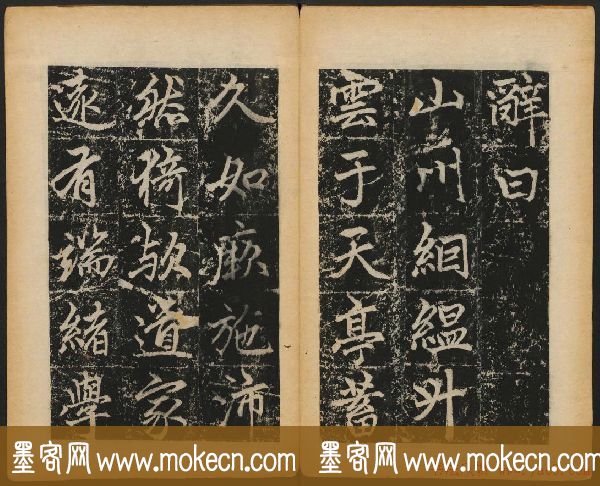 辭曰
山川絪縕升
雲于天亭蓄
久如厥施沛
然猗歟道家
遠有端緒學
墨客网 www.mokecn.com 墨客网 www.mokecn.com